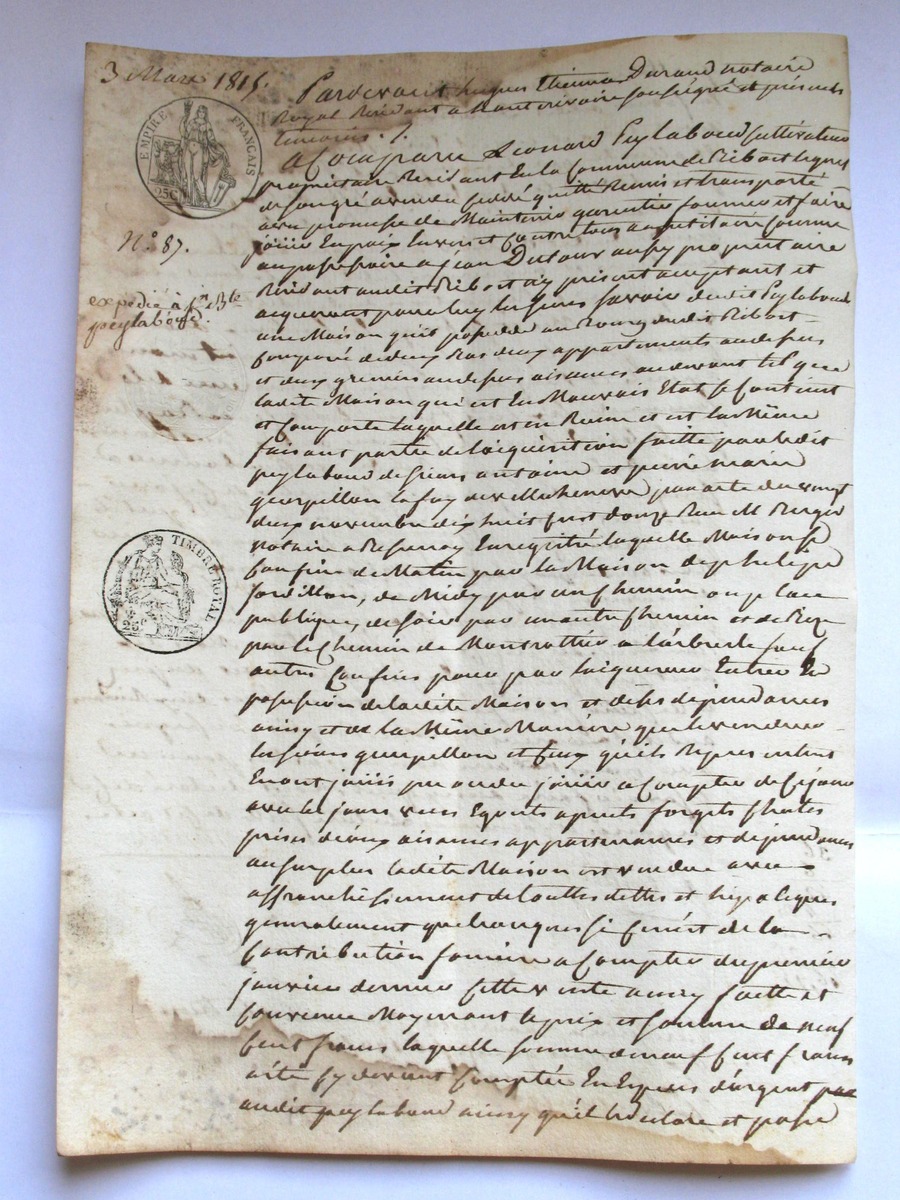 3 Mars 1815.
Pardevant hugues Etienne Durand notaire
Royal Residant a hauterivoire soussigné et présents
temoins ./.
EMPIRE FRANÇAIS
25C
a Comparu Leonard Peylaboud cultivateur
proprietaire Residant En la Commune de Ribost lequel
de son gré a vendu cedé quitté Remis et transporté
avec promesse de Maintenir garentir fournir et faire
jouir En paix Envers et Contre tous
N.° 87.
a jean Dutour aussy proprietaire
Residant audit Ribost icy présent acceptant et
acquerant pour luy les siens savoir dudit Peylaboud
expédié à
peylaboud.
une Maison qu'il possede au Bourg dudit Ribost
Composé de deux bas deux appartements au dessus
et deux greniers au dessus aisances au devant tel que
ladite Maison qui est En Mauvais Etat se Contient
et Comporte laquelle est en Ruine et est la Même
faisant partie de l'acquisition faitte par ledit
peylaboud de sieurs antoine et pierre marie
guerpillon par acte du vingt
deux novembre dix huit cent douze Reçu M.
notaire a Enregistré laquelle Maison se
TIMBRE ROYAL
25c
Confine de Matin par la Maison de phelipe
de Midy par un Chemin ou place
publique, de soir par un autre Chemin et de Bize
par le Chemin de Montrottier a l'arbresle sauf
autres Confins pour par l'acquereur Entrer En
possession de ladite Maison et de ses dependances
ainsy et de la Même Maniere que le vendeur
les sieurs guerpillon et Ceux qu'ils Representent
En ont joüis pu ou du joüir a Compter de Ce jour
avec le jours vues Egouts
prises d'eaux aisances appartenances et dependances
au surplus ladite Maison est vendue avec
affranchissement de touttes dettes et hipoteques
generalement quelconques si Ce n'est de la
Contribution fonciere a Compter du premier
janvier dernier Cette vente ainsy faitte et
Convenue Moyennant le prix et somme de neuf
Cent francs laquelle somme de neuf Cent francs
a été cy devant Comptée En Especes d'argent par
audit peylaboud ainsy qu'il le declare et